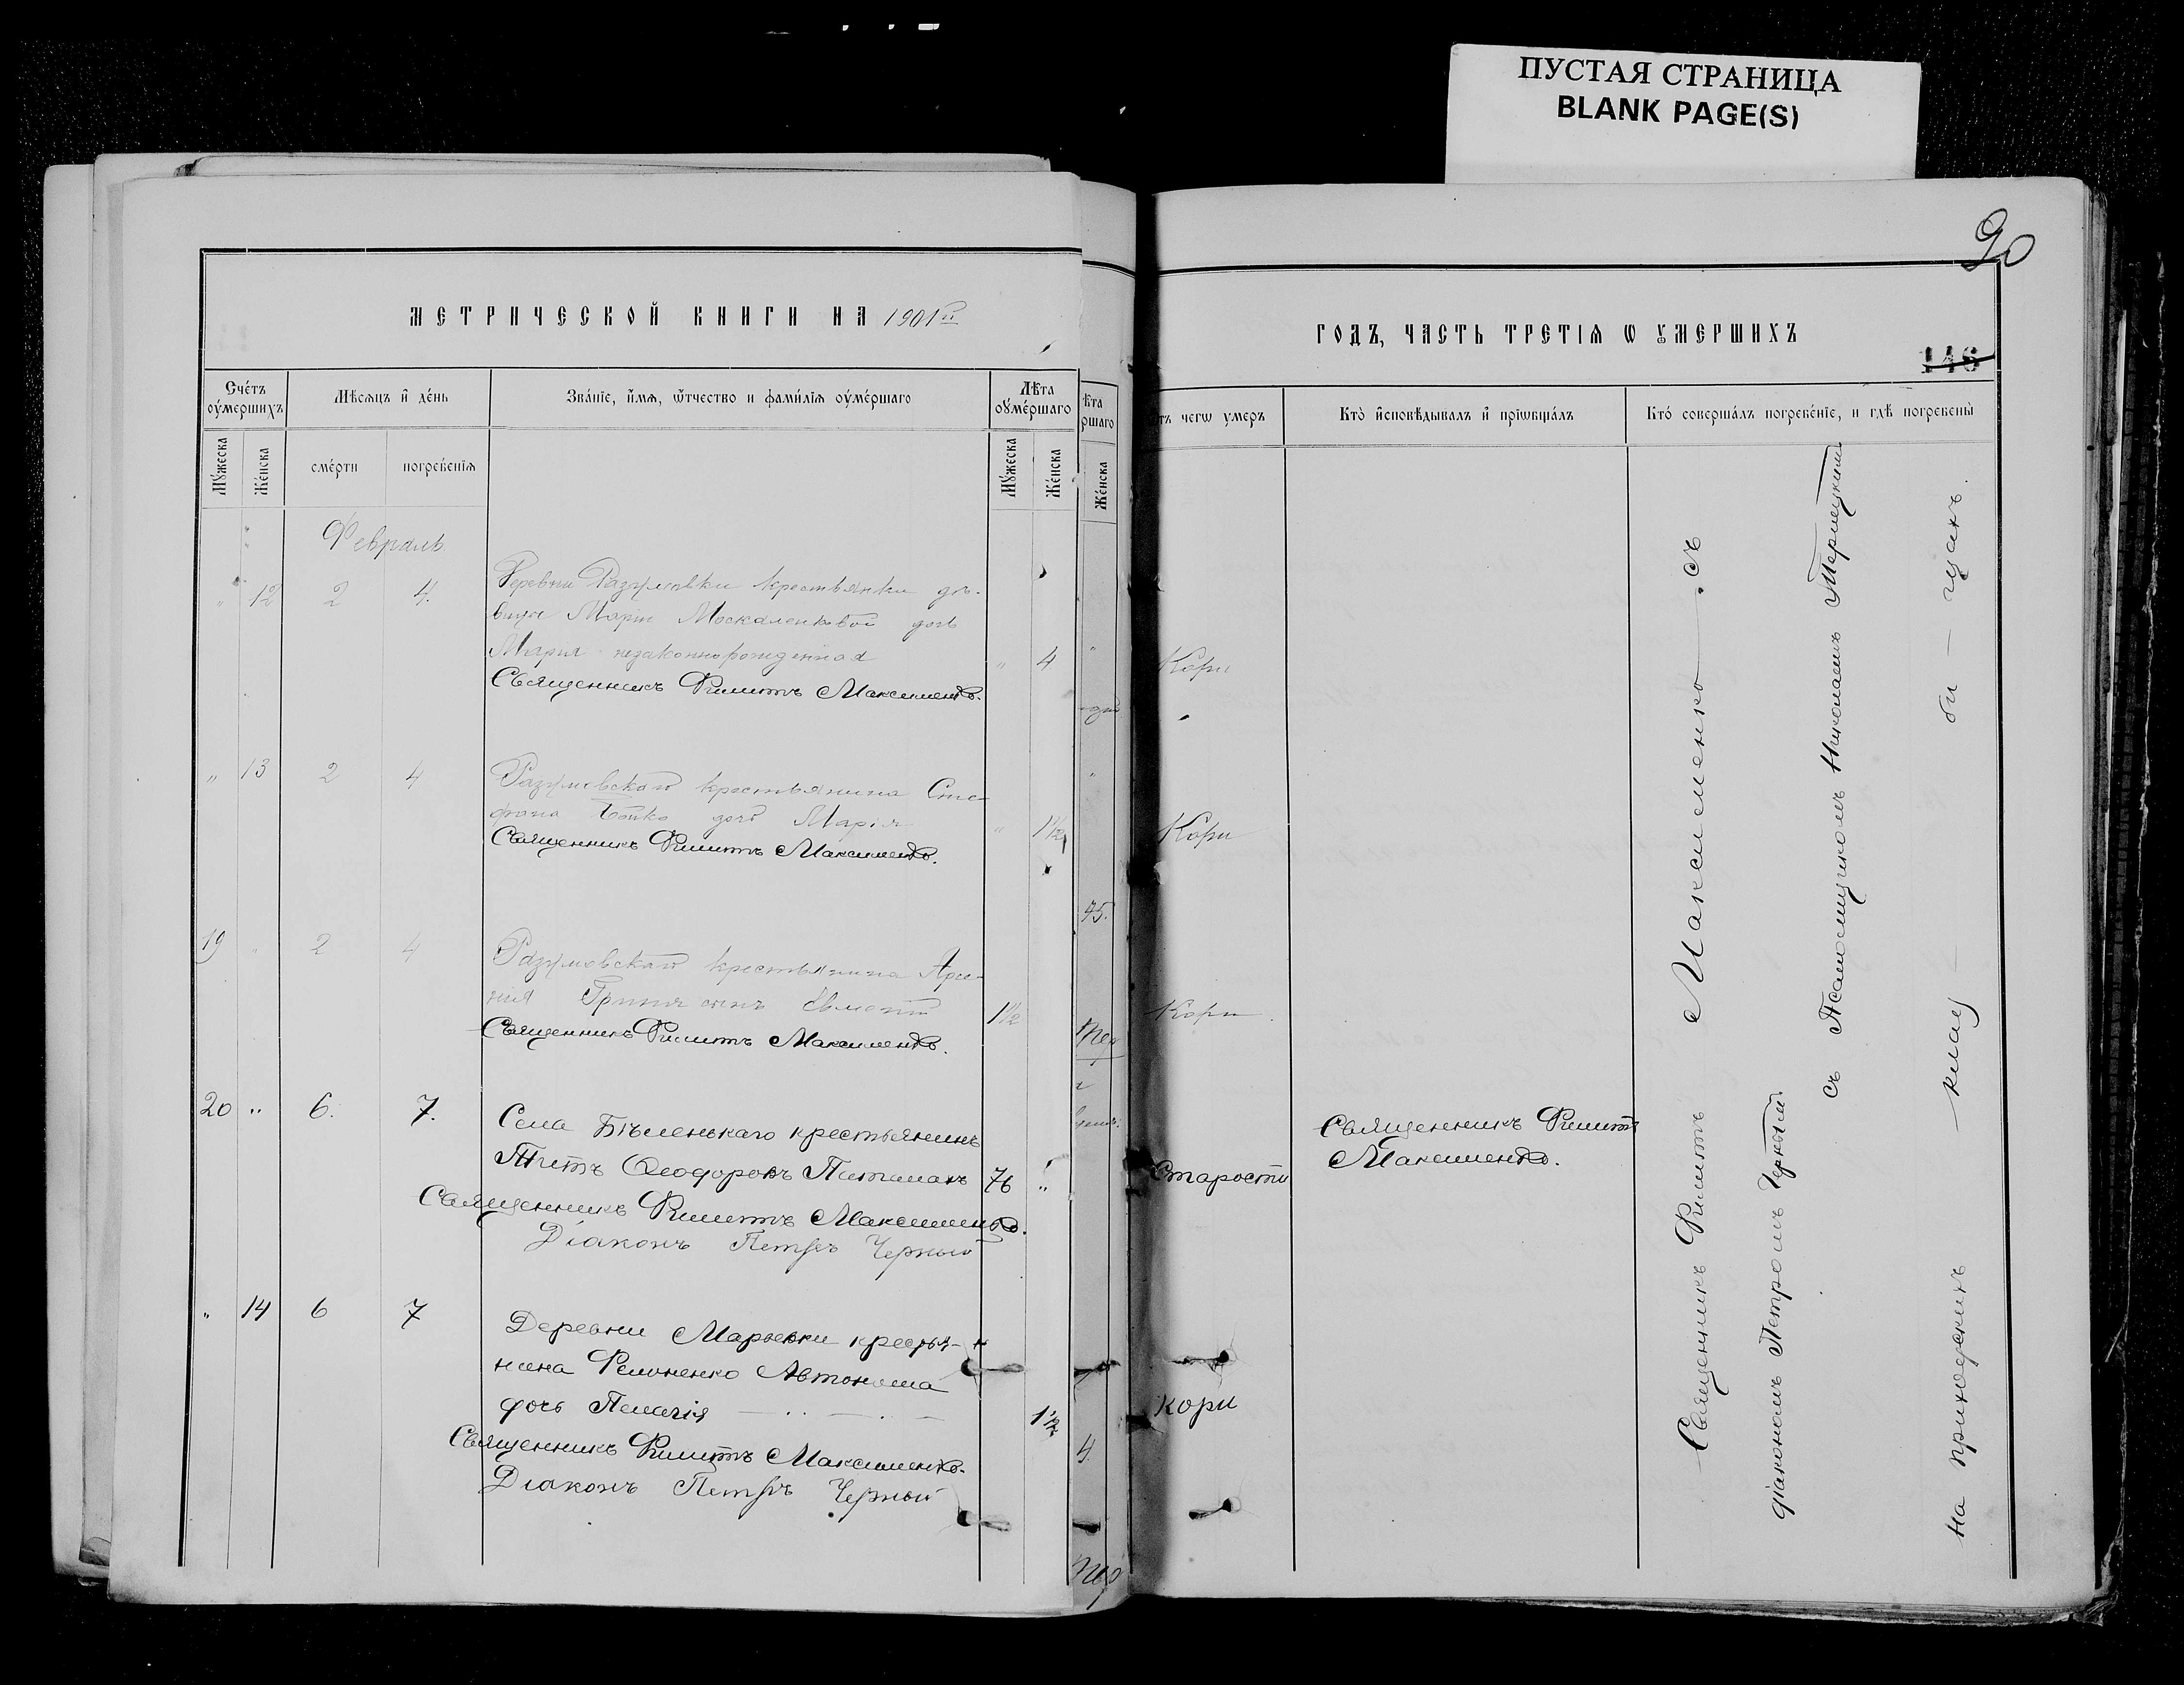 ПУСТАЯ СТРАНИЦА
BLANK PAGE(S)
90
МЕТРИЧЕСКОЙ КНИГИ НА 1901й
ГОДЪ, ЧАСТЬ ТРЕТІЯ Ѡ ОУМЕРШИХЪ
146
Счетъ оумершихъ
Мѣсяцъ и день
Званіе, имя, ѿчество и фамилія оумершаго
Лѣта оумершаго
Мужеска
Женска
смерти
погребенія
Мужеска
Женска
Женска
чегѡ умеръ
Кто исповѣдывалъ и пріѡбщалъ
Кто совершалъ погребеніе, и гдѣ погребены
Февраль
" 12 2 4.
Деревни Разумовки крестьянки дѣ-
вицы Маріи Москаленковой дочь
Марія незаконнорожденная " 4 Кори
Священникъ Филиппъ Максименко.
" 13 2 4
Разумовской крестьянина Сте-
фана Бойко дочь Марія " 1½ Кори
Священникъ Филиппъ Максименко.
19 " 2 4
Разумовской крестьянина
сынъ 1½ Кори
Священникъ Филиппъ Максименко.
20 " 6. 7.
Села Бѣленькаго крестьянинъ
Титъ Ѳеодоровъ 76 " Старости
Священникъ Филиппъ Максименко.
Діаконъ Петръ Черный
Священникъ Филиппъ
Максименко.
" 14 6 7
Деревни Марьевки крестья-
нина Автонома
дочь Пелагія 1½ кори
Священникъ Филиппъ Максименко.
Діаконъ Петръ Черный
Священникъ Филиппъ Максименко съ
діакономъ Петромъ Чернымъ
съ Псаломщикомъ Николаемъ
на приходскихъ клад - би - щахъ.
45.
4.